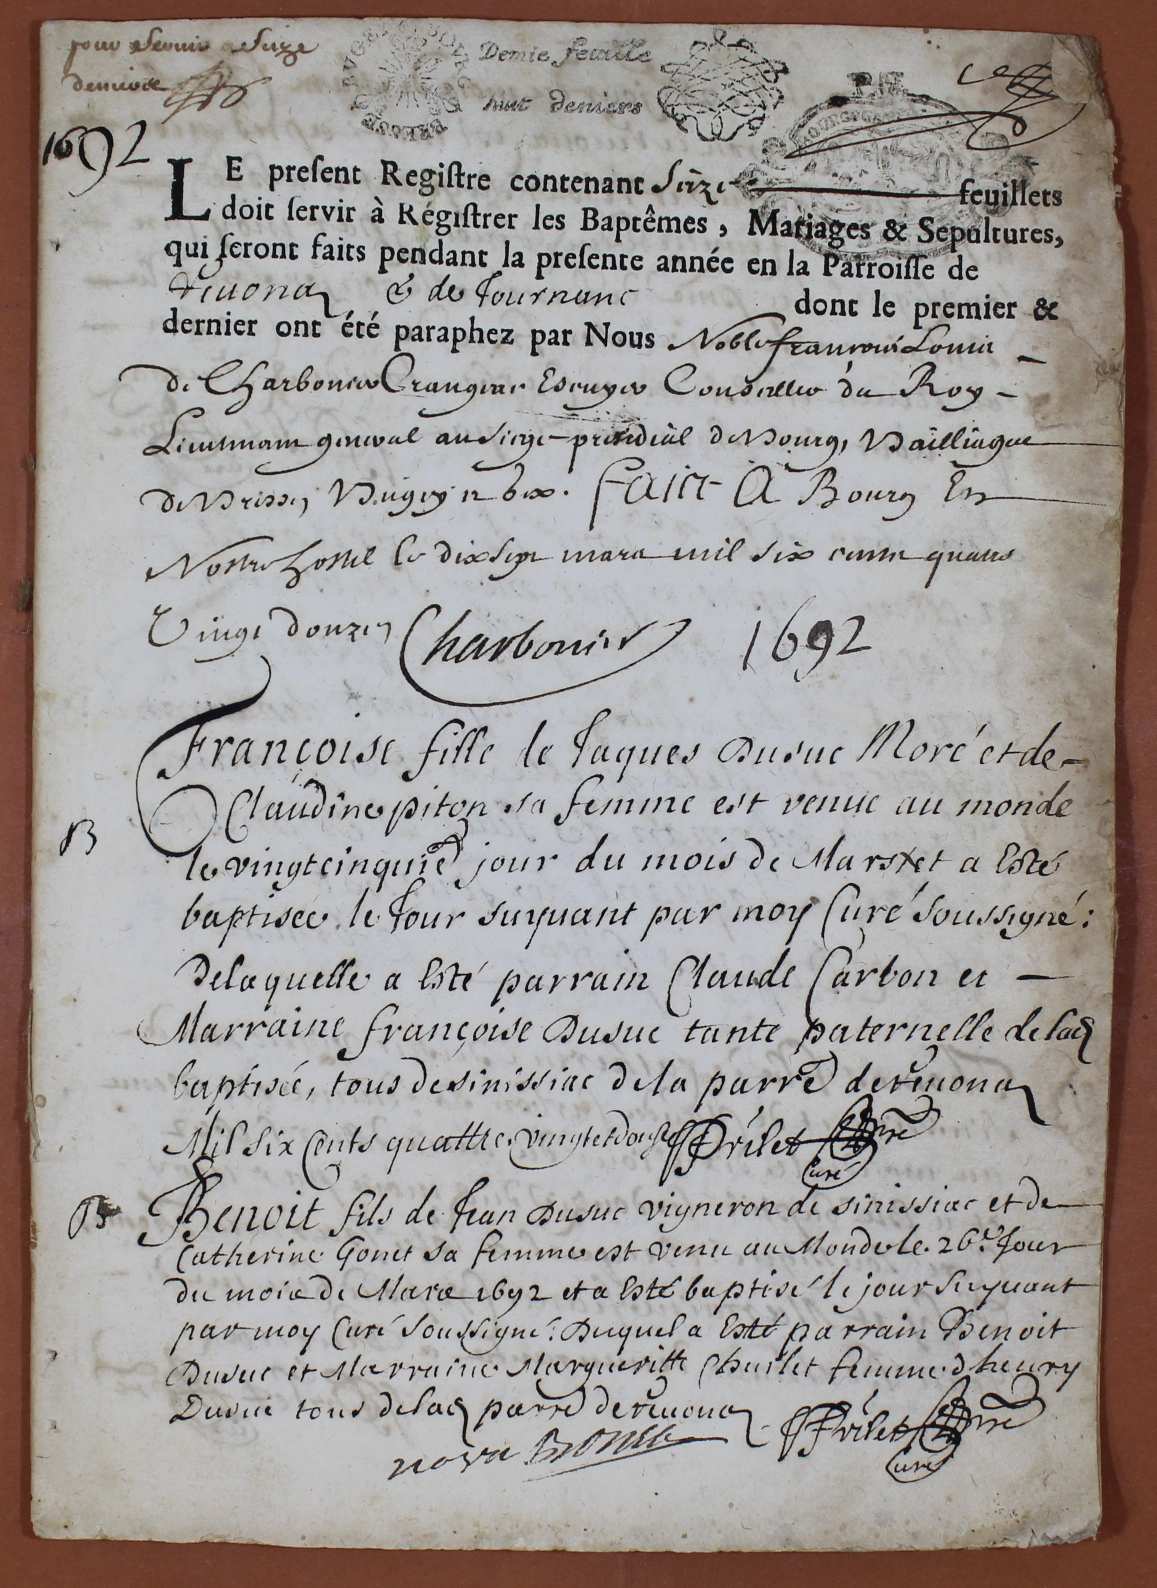 pour servir a Suze
Demie feuille
huit deniers
1692
LE present Registre contenant seize feuillets
doit servir à Régistrer les Baptêmes, Mariages & Sepultures,
qui seront faits pendant la presente année en la Parroisse de
& de Tournanc dont le premier &
dernier ont été paraphez par Nous Noble françois Louis
de Charbonier Crangeac Escuyer Conseiller du Roy
Lieutenant general au siege presidial de Bourg, Bailliage
de Bresse, Bugey et Gex. Faict A Bourg En
Nostre hostel le dix sept mars mil six cents quatre
Vingt douze Charbonier 1692
Françoise fille de Jaques Dusuc Moré et de
Claudine piton sa femme est venue au monde
B
le vingtcinquie jour du mois de Mars et a Esté
baptisée le Jour suyuant par moy Curé soussigné:
De laquelle a Esté parrain Claude Carbon et
Marraine françoise Dusuc tante paternelle de lad
baptisée, tous de sinissiac de la parre de reuona
Mil six Cents quattre vingt et douse Prilet
Curé
B
Benoit fils de Jean Dusuc vigneron de sinissiac et de
Catherine Gonet sa femme est venu au Monde le 26.e Jour
du mois de Mars 1692 et a Esté baptisé le jour suyuant
par moy Curé soussigné: Duquel a Esté parrain Benoit
Dusuc et Marraine Margueritte Chuilet femme d'henry
Dusuc tous de lad parre de reuona Prilet
Curé